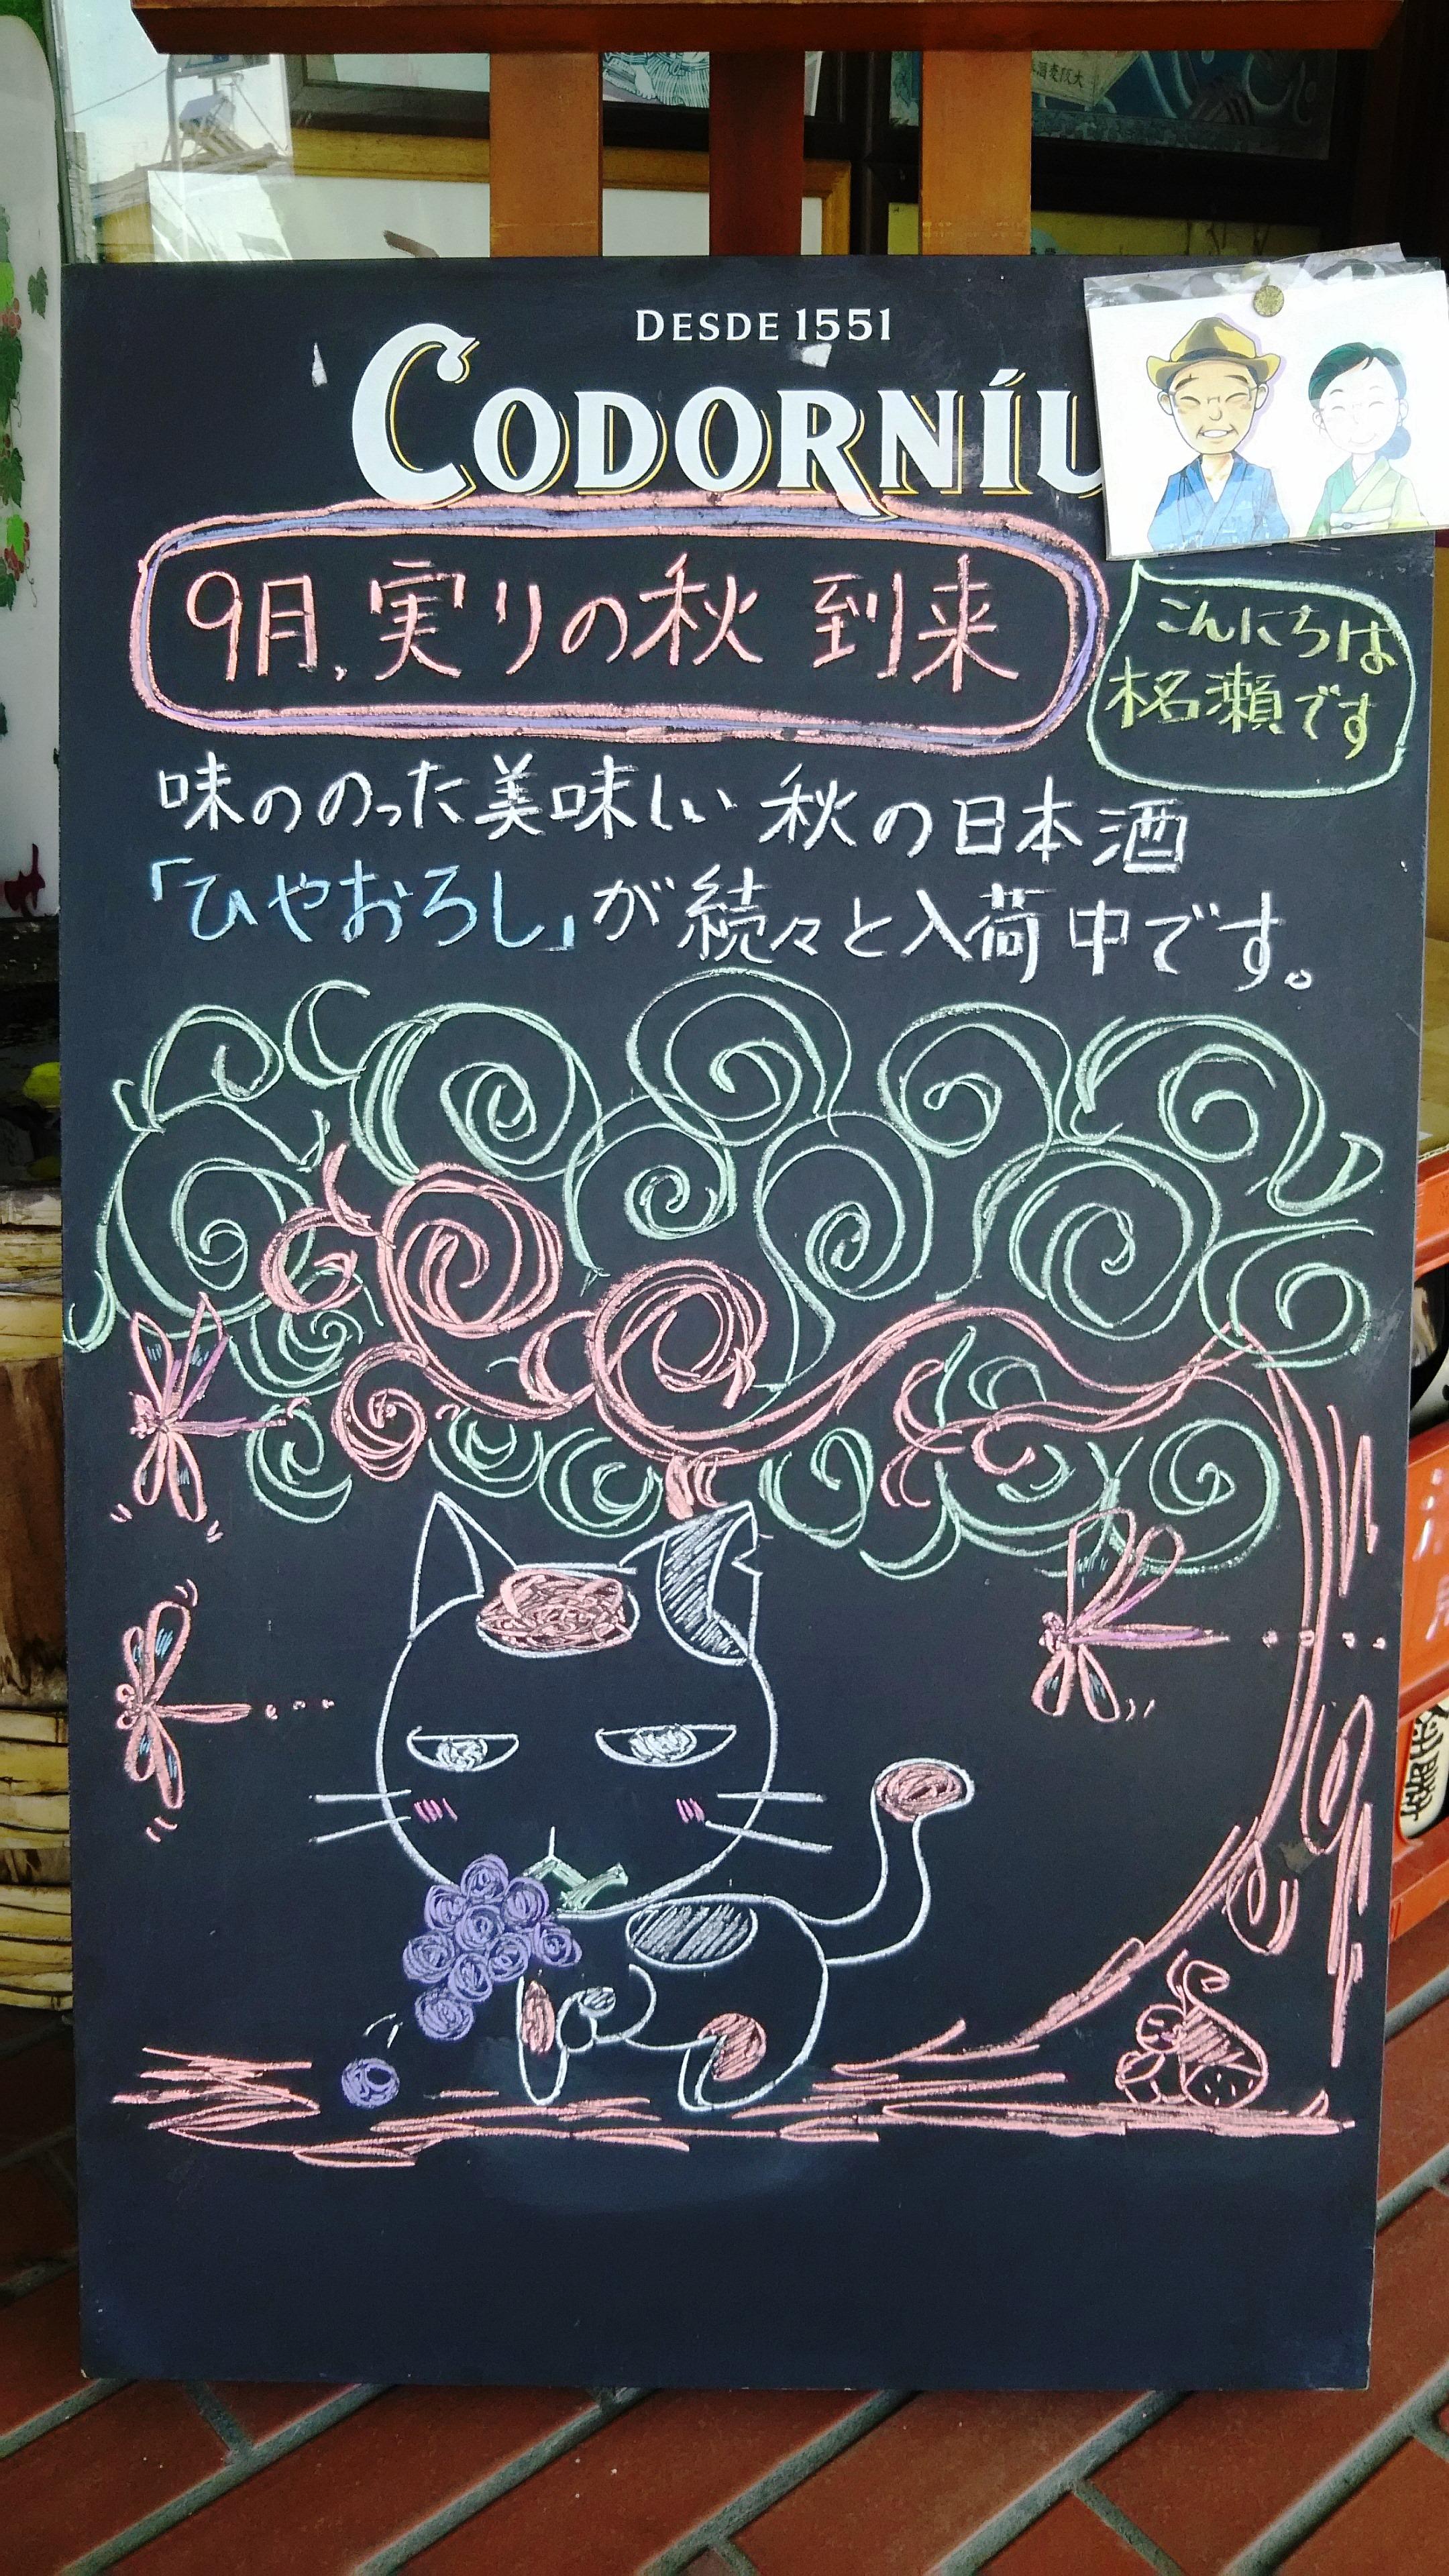 DESDE 1551
CODORNÍU
9月,実りの秋 到来
こんにちは
椧瀬です
味ののった美味しい 秋の日本酒
「ひやおろし」が続々と入荷中です。